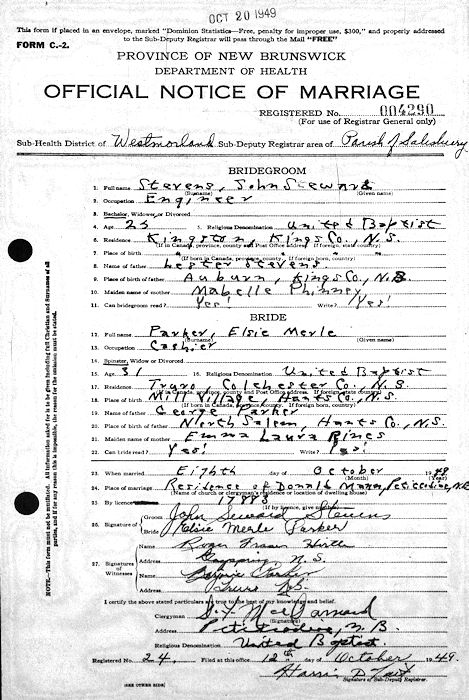 OCT 20 1949
This form if placed in an envelope, marked "Dominion Statistics—Free, penalty for improper use, $300," and properly addressed
to the Sub-Deputy Registrar will pass through the Mail "FREE"
FORM C.-2.
PROVINCE OF NEW BRUNSWICK
DEPARTMENT OF HEALTH
OFFICIAL NOTICE OF MARRIAGE
REGISTERED No. 004290
(For use of Registrar General only)
Sub-Health District of Westmorland Sub-Deputy Registrar area of Parish of Salisbury
BRIDEGROOM
1. Full name Stevens, John Seward
(Surname) (Given name)
2. Occupation Engineer
3. Bachelor, Widower or Divorced
4. Age 25 5. Religious Denomination United Baptist
6. Residence Kingston, Kings Co., N.S.
(If in Canada, province, county and Post Office address. If foreign, state country)
7. Place of birth
(If born in Canada, province, county. If foreign born, country)
8. Name of father Lester Stevens.
9. Place of birth of father Auburn, Kings Co., N.S.
(If born in Canada, province, county. If foreign born, country)
10. Maiden name of mother Mabelle Phinney
11. Can bridegroom read? Yes! Write? Yes!
BRIDE
12. Full name Parker, Elsie Merle
(Surname) (Given name)
13. Occupation Cashier
14. Spinster, Widow or Divorced
15. Age 31 16. Religious Denomination United Baptist
17. Residence Truro Colchester Co., N.S.
(If in Canada, province, county and Post Office address. If foreign, state country)
18. Place of birth Mill Village, Hants Co., N.S.
(If born in Canada, province, county. If foreign born, country)
19. Name of father George Parker
20. Place of birth of father North Salem, Hants Co., N.S.
21. Maiden name of mother Emma Laura Rines
22. Can bride read? Yes! Write? Yes!
23. When married Eighth day of October 1949
(Month) (Year)
24. Place of marriage Residence of Donald Petitcodiac, N.B.
(Name of church or clergyman's residence or location of dwelling house)
25. By licence 17883
(If by licence, give number)
26. Signature of Groom John Seward Stevens
Bride Elsie Merle Parker
27. Signatures of Witnesses
Name Roger Fraser
Address N.S.
Name Parker
Address Truro N.S.
I certify the above stated particulars are true to the best of my knowledge and belief.
Clergyman
(Signature)
Address Petitcodiac, N.B.
Religious Denomination United Baptist
Registered No. 24. Filed at this office 12th day of October 1949.
Signature of Sub-Dep. Registrar
(SEE OTHER SIDE)
NOTE.—This form must not be mutilated. All information asked for is to be given including full Christian and Surnames of all
parties, and if for any reason this is impossible, the reason for the omission must be stated.